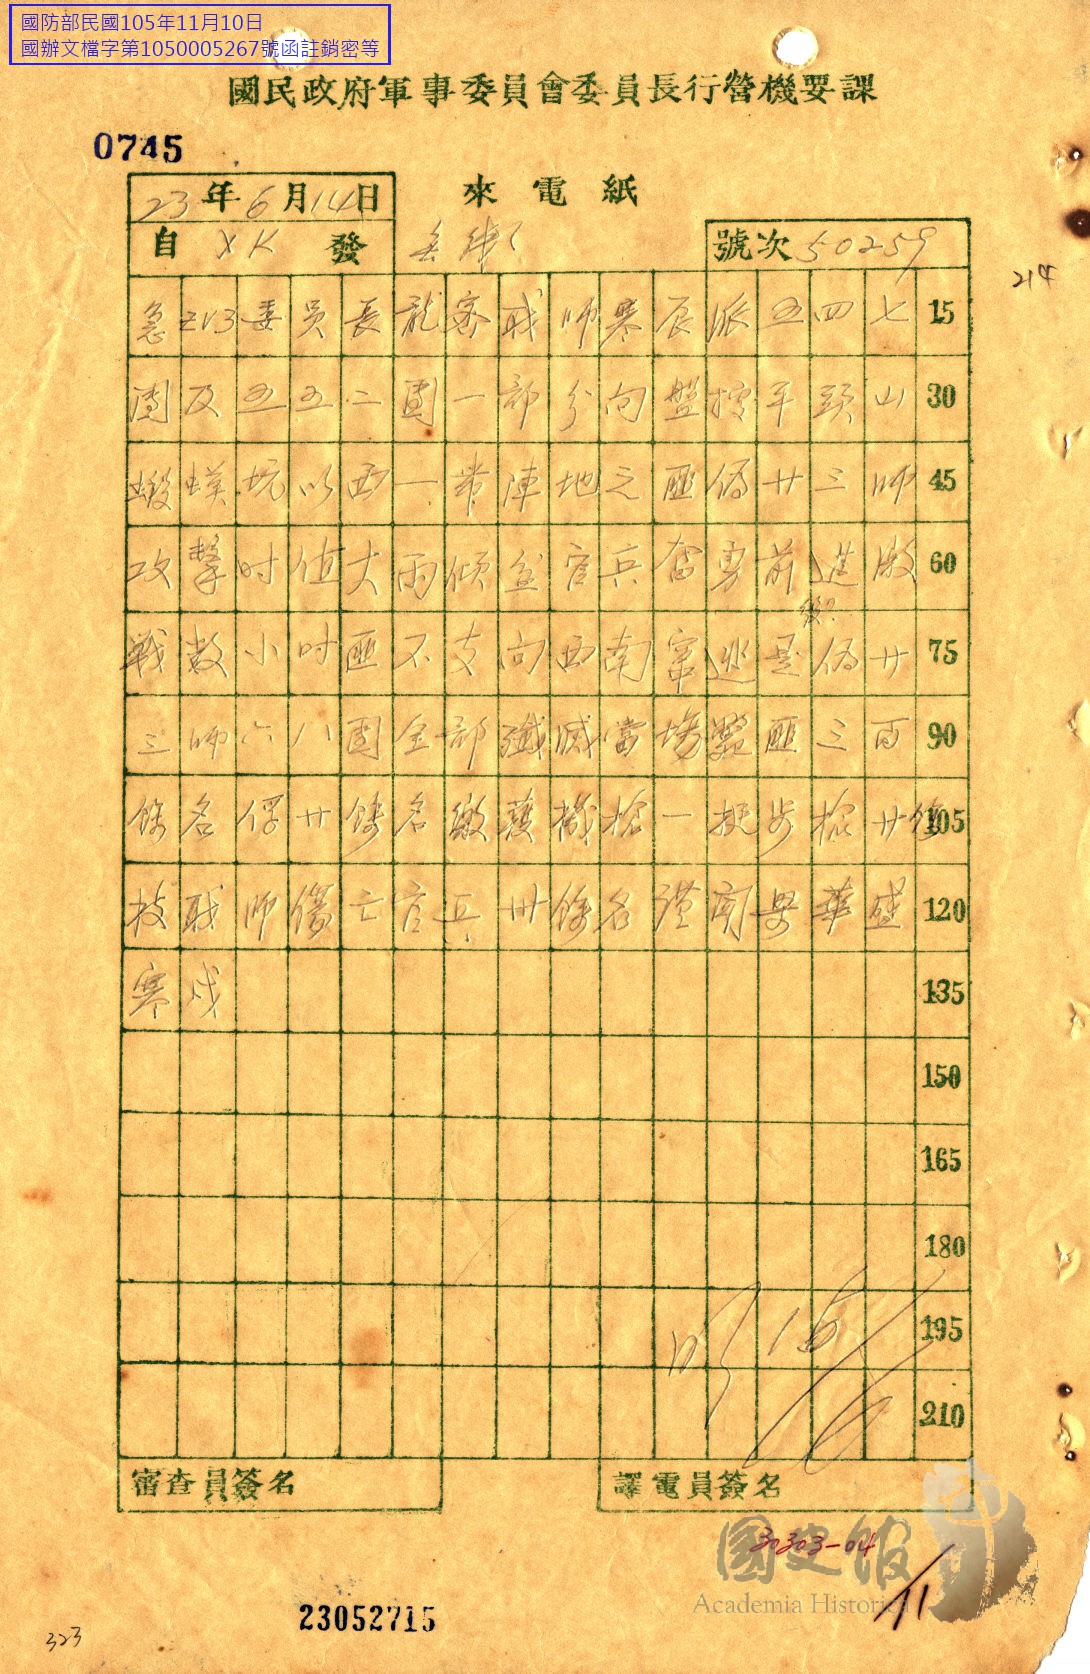 國防部民國105年11月10日
國辦文檔字第1050005267號函註銷密等
國民政府軍事委員會委員長行營機要課
0745
23年6月14日
來電紙
自XK發
號次50259
214
急2113委員長龍密職師寒辰派五四七 15
團及五五二團一部分向盤據平頭山 30
蝦蟆坑以西一帶陣地之匪偽廿三師 45
攻擊时值大雨傾盆官兵奮勇前進激 60
戰数小时匪不支向西南竄逃是偽廿 75
三师六八團全部殲滅當場斃匪三百 90
餘名俘廿餘名繳獲機槍一挺步槍廿餘 105
枝职师傷亡官兵卅餘名謹聞 華盛 120
寒戌 135
150
165
180
195
210
審查員簽名
譯電員簽名
國史館
Academia Historica
30303-04
11
23052715
323